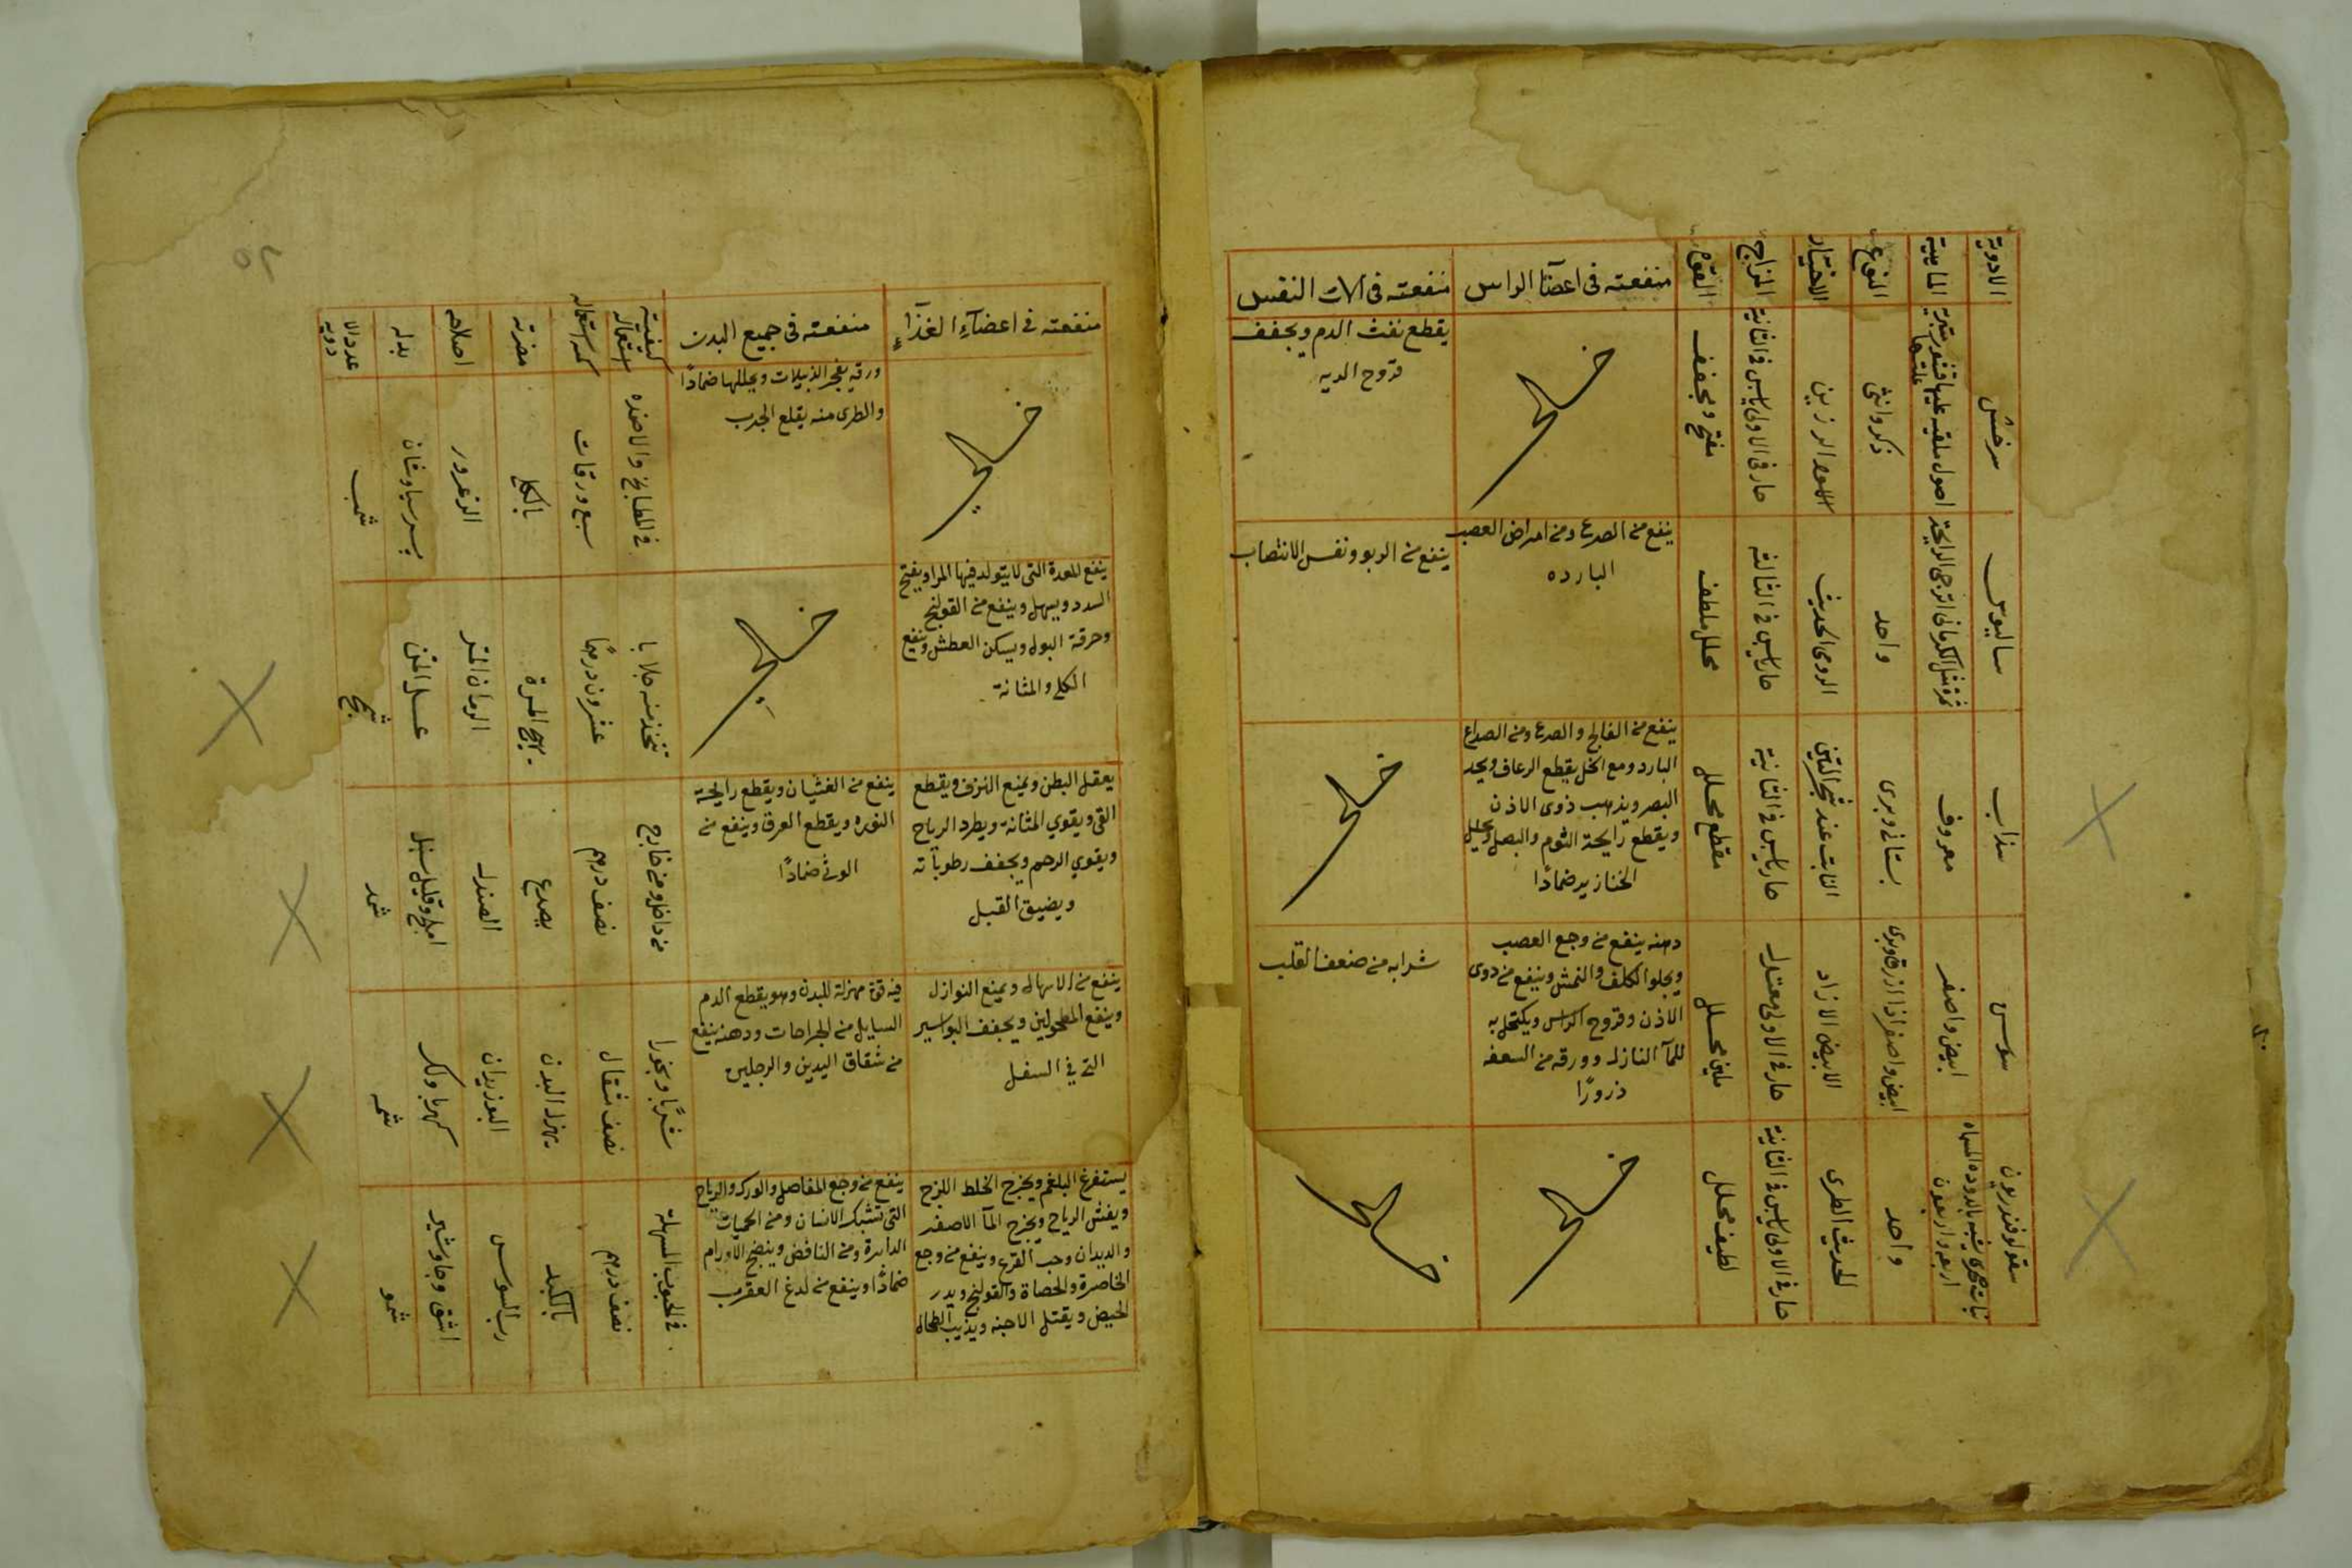 الادوية
الماهية
النوع
الاختيار
المزاج
القوة
منفعته في اعضآ الراس
منفعته في الات النفس
سرخس
ذكر وانثى
الاسود الرزين
حار في الاولى يابس في الثانية
مفتح ومجفف
خالي
يقطع نفث الدم ويجفف
قروح الريه
ساليوس
واحد
الرومي الحديث
حار يابس في الثالثة
محلل ملطف
ينفع من الصرع ومن امراض العصب
البارده
ينفع من الربو ونفس الانتصاب
سذاب
معروف
بستاني وبري
النابت عند شجر التين
حار يابس في الثانية
مقطع محلل
ينفع من الفالج والصرع ومن الصداع
البارد ومع الخل يقطع الرعاف ويحد
البصر ويذهب دوى الاذن
ويقطع رايحة الثوم والبصل ويحلل
الخنازير ضمادًا
خالي
سوسن
ابيض واصفر
الابيض الازاد
حار في الاولى معتدل
ملين محلل
دهنه ينفع من وجع العصب
ويجلوا الكلف والنمش وينفع من دوى
الاذن وقروح الراس ويكتحل به
للمآ النازل وورقه من السعفه
ذرورًا
شرابه من ضعف القلب
سقولوفندريون
واحد
الحديث الطرى
حار في الاولى يابس في الثانية
لطيف محلل
خالي
خالي
منفعته في اعضآء الغذآء
منفعته في جميع البدن
كيفية استعماله
كمية استعماله
مضرته
اصلاحه
بدله
عدد الا
دويه
خالي
ورقه يفجر الدبيلات ويحللها ضمادًا
والطرى منه يقلع الجرب
سبع ورقات
بالكلى
الزعرور
برسياوشان
شمب
ينفع المعدة التى لا يتولد فيها المرار ويفتح
السدد ويسهل وينفع من القولنج
وحرقة البول ويسكن العطش وينفع
الكلى والمثانة
خالي
يتخذ منه جلابا
عشرون درهمًا
يهيج المرة
الرمان المز
شمج
يعقل البطن ويمنع النزف ويقطع
القى ويقوي المثانة ويطرد الرياح
ويقوي الرحم ويجفف رطوباته
ويضيق القبل
ينفع من الغثيان ويقطع رايحة
النوره ويقطع العرق وينفع من
الوثي ضمادًا
من داخل ومن خارج
نصف درهم
يصدع
الصندل
املج وقليل سنبل
شمد
ينفع من الاسهال ويمنع النوازل
وينفع المطحولين ويجفف البواسير
التي في السفل
فيه قوة مهزلة للبدن وهو يقطع الدم
السايل من الجراحات ودهنه ينفع
من شقاق اليدين والرجلين
شربًا وبخورا
نصف مثقال
يهزل البدن
البوزيدان
كهربا ولك
شمه
يستفرغ البلغم ويخرج الخلط اللزج
ويفش الرياح ويخرج المآ الاصفر
والديدان وحب القرع وينفع من وجع
الخاصرة والحصاة والقولنج ويدر
الحيض ويقتل الاجنه ويذيب الطحال
ينفع من وجع المفاصل والورك والرياح
التي تشبك الانسان ومن الحميات
الدايرة ومن النافض وينضج الاورام
ضمادًا وينفع من لدغ العقرب
في الحبوب المسهلة
نصف درهم
بالكبد
رب السوس
اشق وجاوشير
شمو